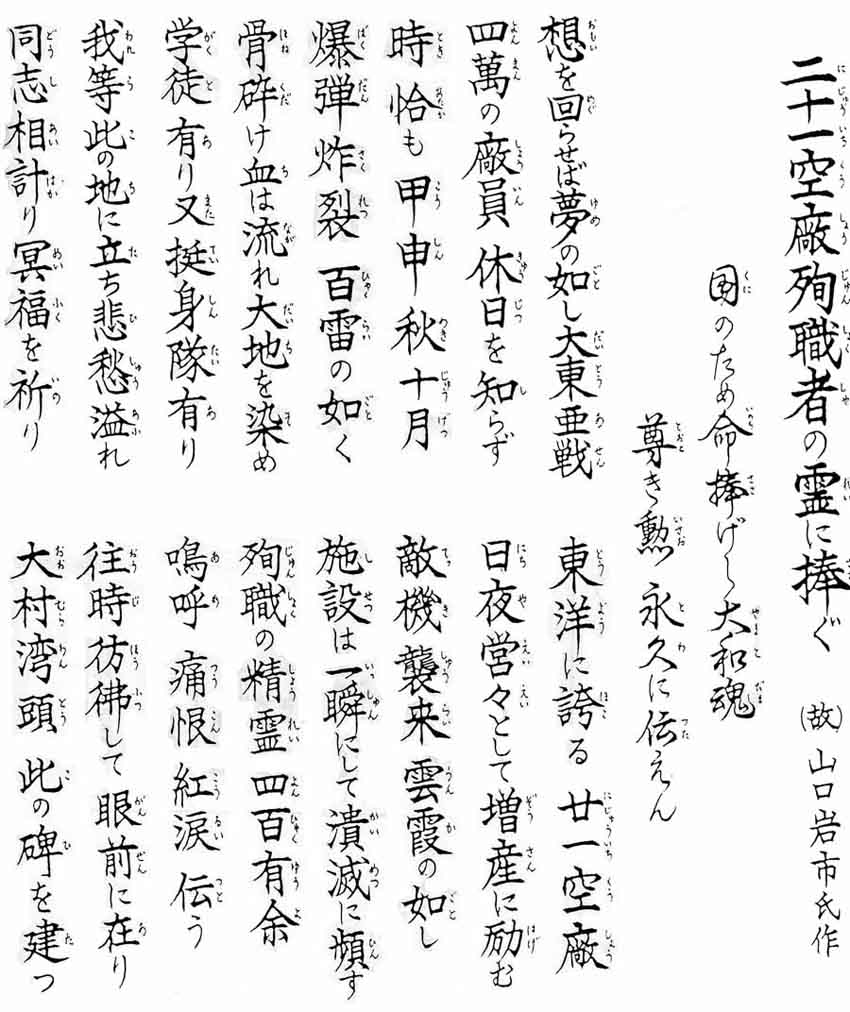 二十一空廠殉職者の霊に捧ぐ (故)山口岩市氏作
国のため命捧げし大和魂
尊き勲 永久に伝えん
想を回らせば夢の如し大東亜戦 東洋に誇る 廿一空廠
四萬の廠員 休日を知らず 日夜営々として増産に励む
時恰も甲申秋十月 敵機襲来雲霞の如し
爆弾炸裂 百雷の如く 施設は一瞬にして潰滅に頻す
骨砕け血は流れ大地を染め 殉職の精霊四百有余
学徒有り又挺身隊有り 鳴呼 痛恨 紅涙 伝う
我等此の地に立ち悲愁溢れ 往時彷彿して眼前に在り
同志相計り冥福を祈り 大村湾頭 此の碑を建つ